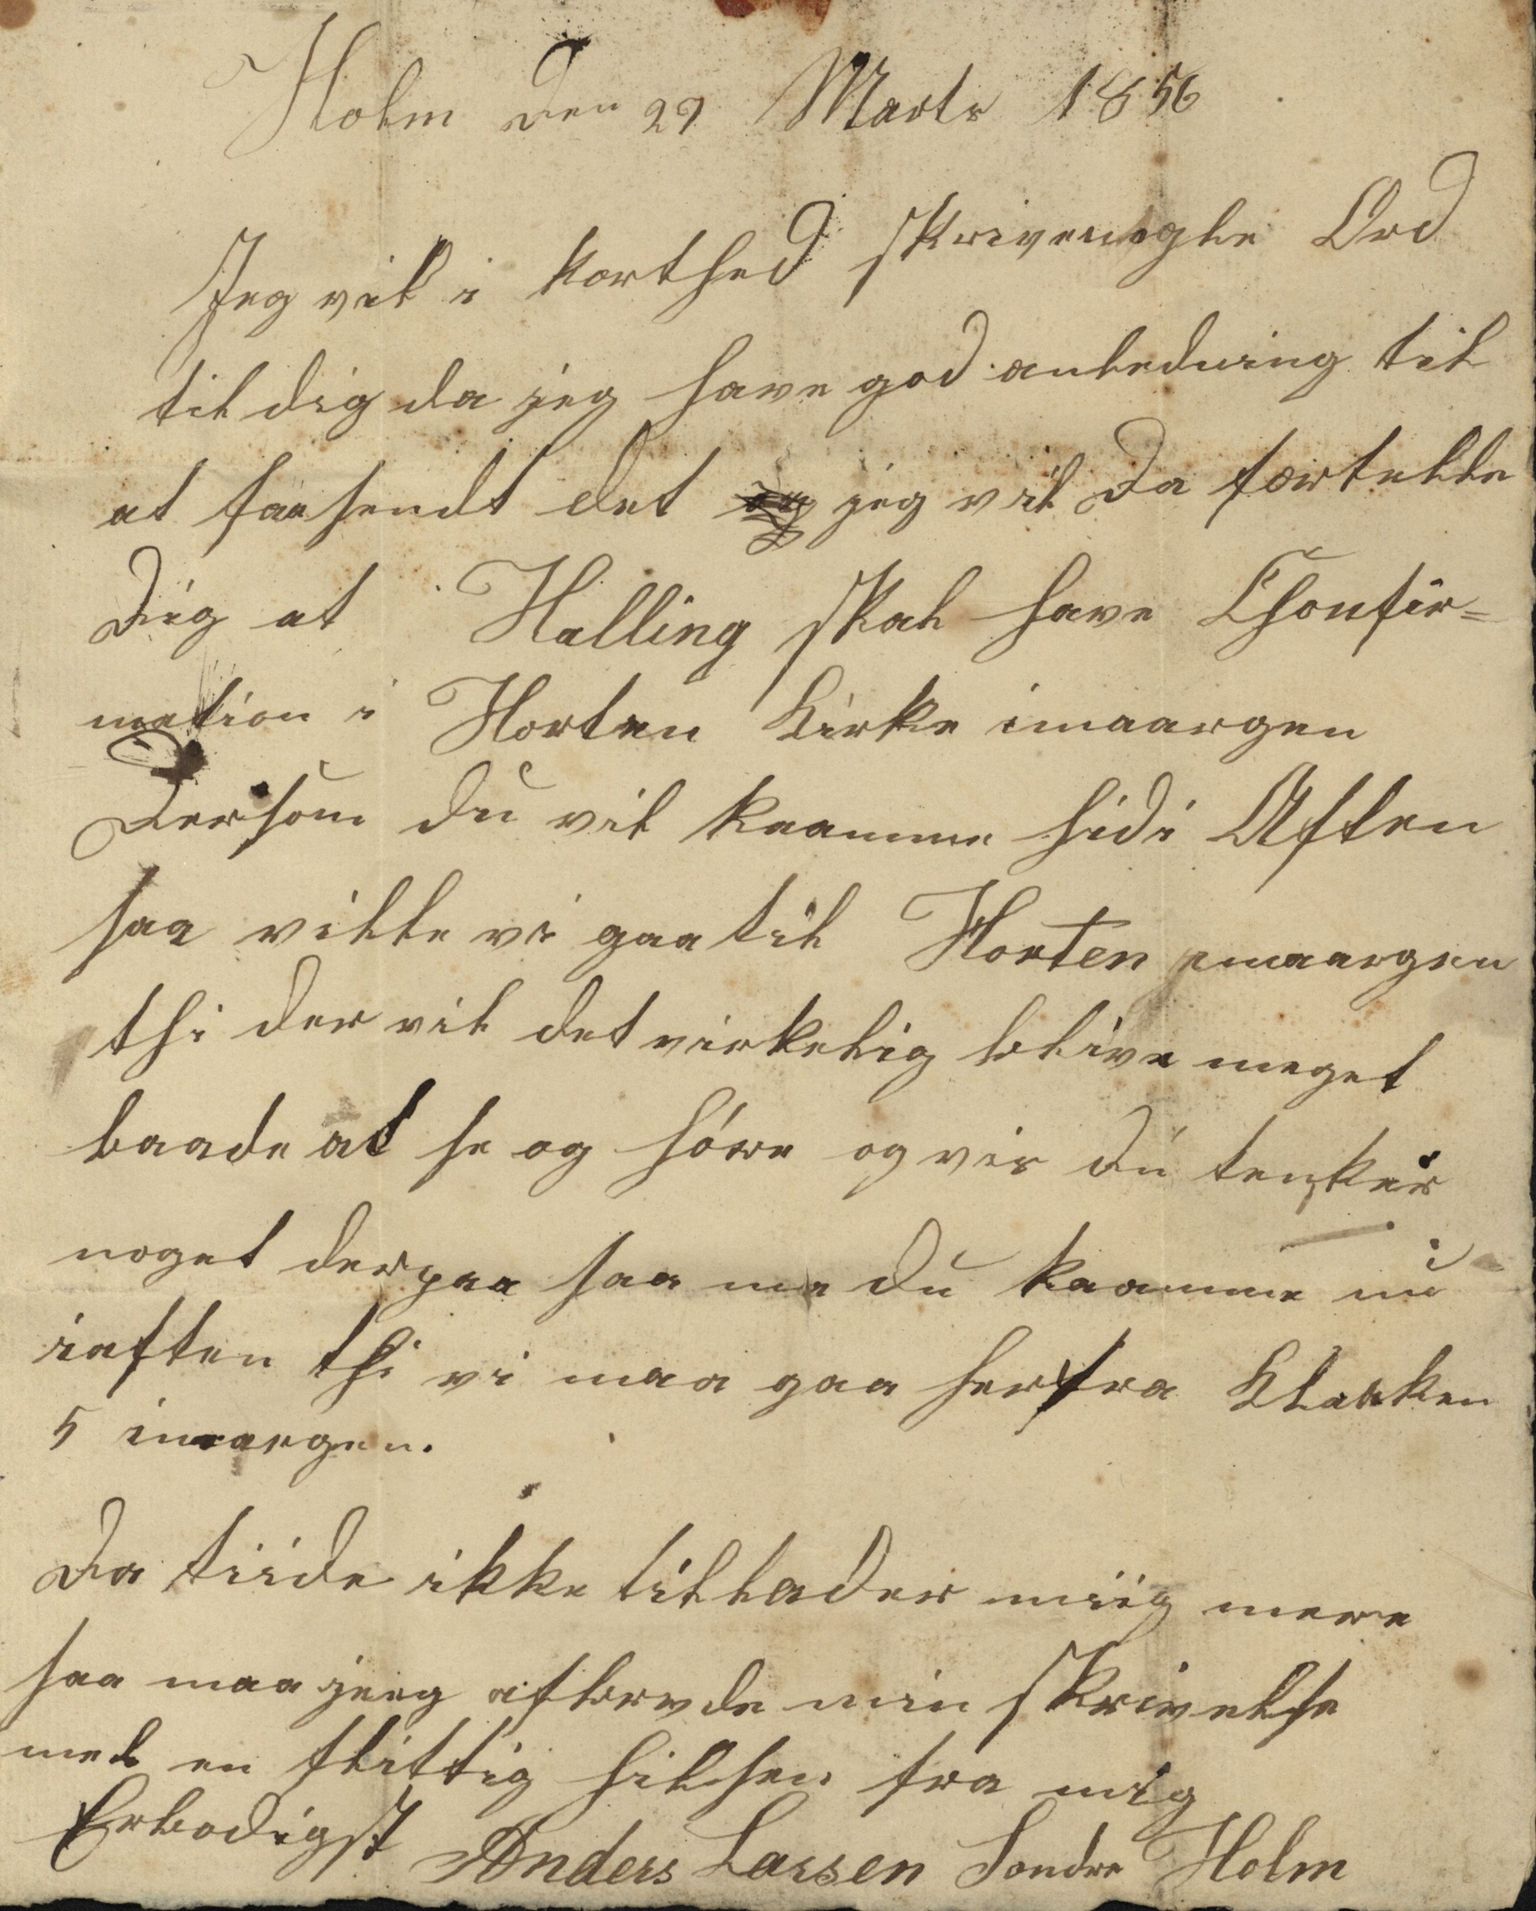 Holm den 29 Marts 1856
Jeg vil i korthed skrive nogle Ord
til dig da jeg have god anledning til
at faa sendt det jeg vil da fortelle
Dig at Halling skal have Chonfir=
mation i Horten Kirke imaargen
Dersom du vil kaamme hid i Aften
saa ville vi gaa til Horten imaargen
thi der vil det virkelig blive meget
baade at se og hóre og vis du tenker
noget derpaa saa ma du kaamme nu
iaften thi vi maa gaa herfra Klakken
5 imaargen.
Da tiide ikke tillader miig mere
saa maa jeeg afbryde min skrivelse
med en flittig hilsen fra mig
Erbodigst Anders Larsen Sondre Holm